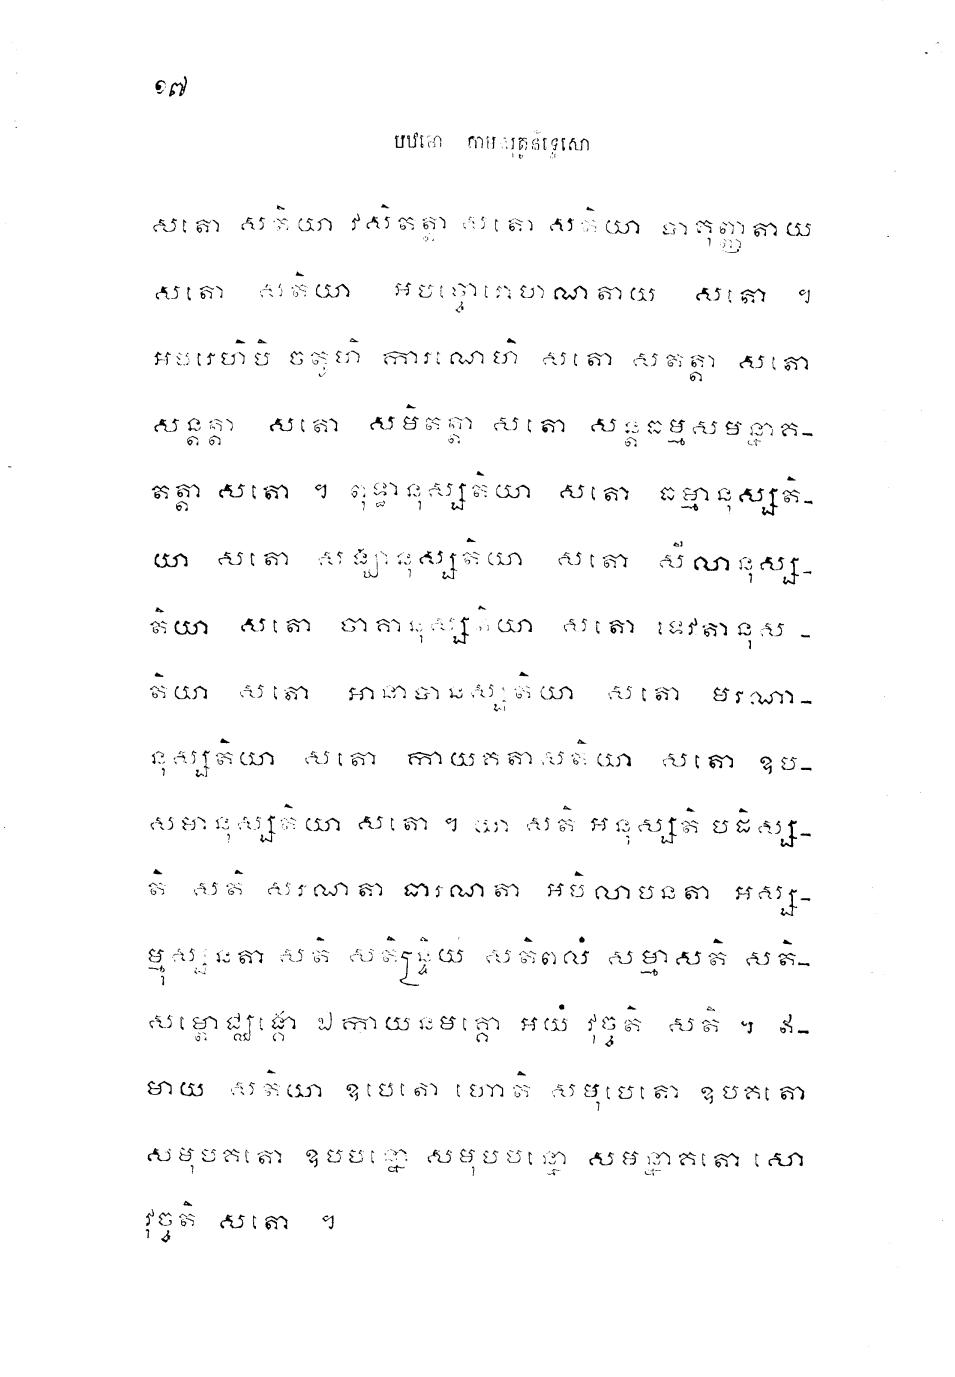 ១៧
បឋមោ កាមសុត្តនិទ្ទេសោ
សតោ សតិយា វសិតត្តា សតោ សតិយា បាគុញ្ញតាយ
សតោ សតិយា អបច្ចោរោហណតាយ សតោ ។
អបរេហិបិ ចតូហិ ការណេហិ សតោ សតត្តា សតោ
សន្តត្តា សតោ សមិតត្តា សតោ សន្តធម្មសមន្នាគ-
តត្តា សតោ ។ ពុទ្ធានុស្សតិយា សតោ ធម្មានុស្សតិ-
យា សតោ សង្ឃានុស្សតិយា សតោ សីលានុស្ស-
តិយា សតោ ចាគានុស្សតិយា សតោ ទេវតានុស -
តិយា សតោ អានាបានស្សតិយា សតោ មរណា-
នុស្សតិយា សតោ កាយគតាសតិយា សតោ ឧប-
សមានុស្សតិយា សតោ ។ យា សតិ អនុស្សតិ បដិស្ស-
តិ សតិ សរណតា ធារណតា អបិលាបនតា អស្ស-
ម្មុស្សនតា សតិ សតិន្ទ្រិយំ សតិពលំ សម្មាសតិ សតិ-
សម្ពោជ្ឈង្គោ ឯកាយនមគ្គោ អយំ វុច្ចតិ សតិ ។ ឥ-
មាយ សតិយា ឧបេតោ ហោតិ សមុបេតោ ឧបគតោ
សមុបគតោ ឧបបន្នោ សមុបបន្នោ សមន្នាគតោ សោ
វុច្ចតិ សតោ ។